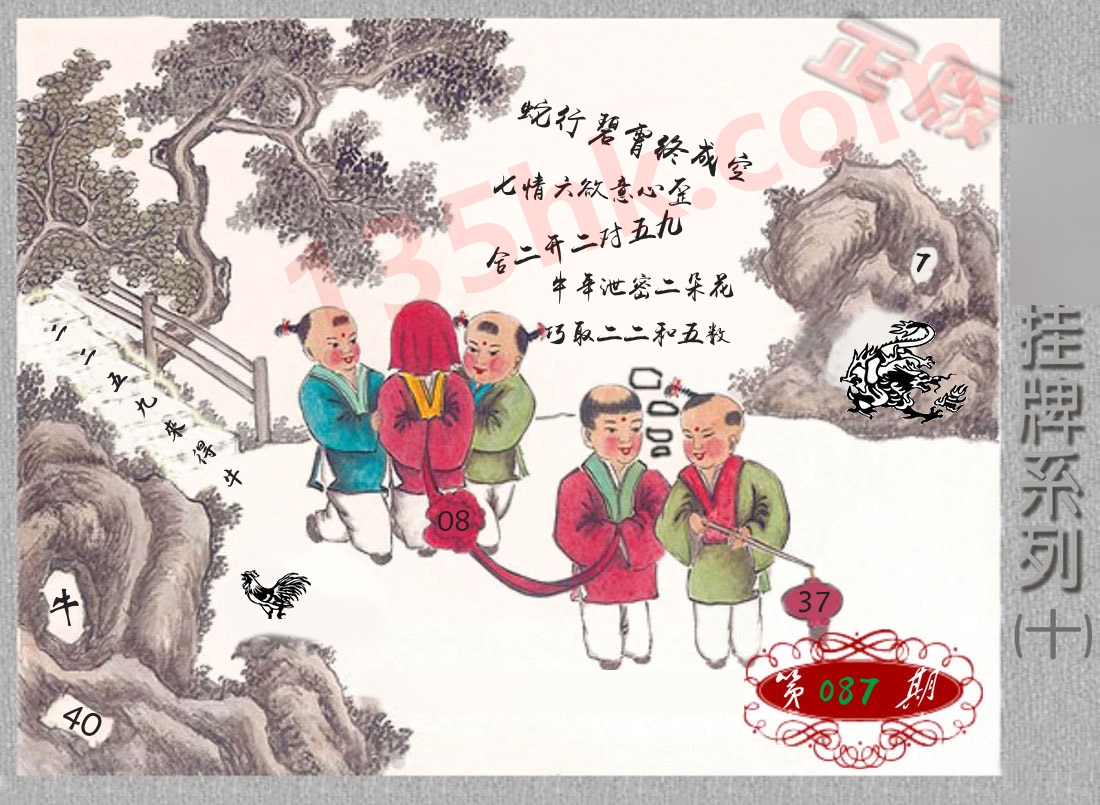 正版
135hk.com
蛇行碧霄终成空
七情六欲意心歪
合二开二对五九
牛年泄密二朵花
巧取二二和五数
7
二二五九来得牛
08
37
牛
40
第087期
挂牌系列(十)